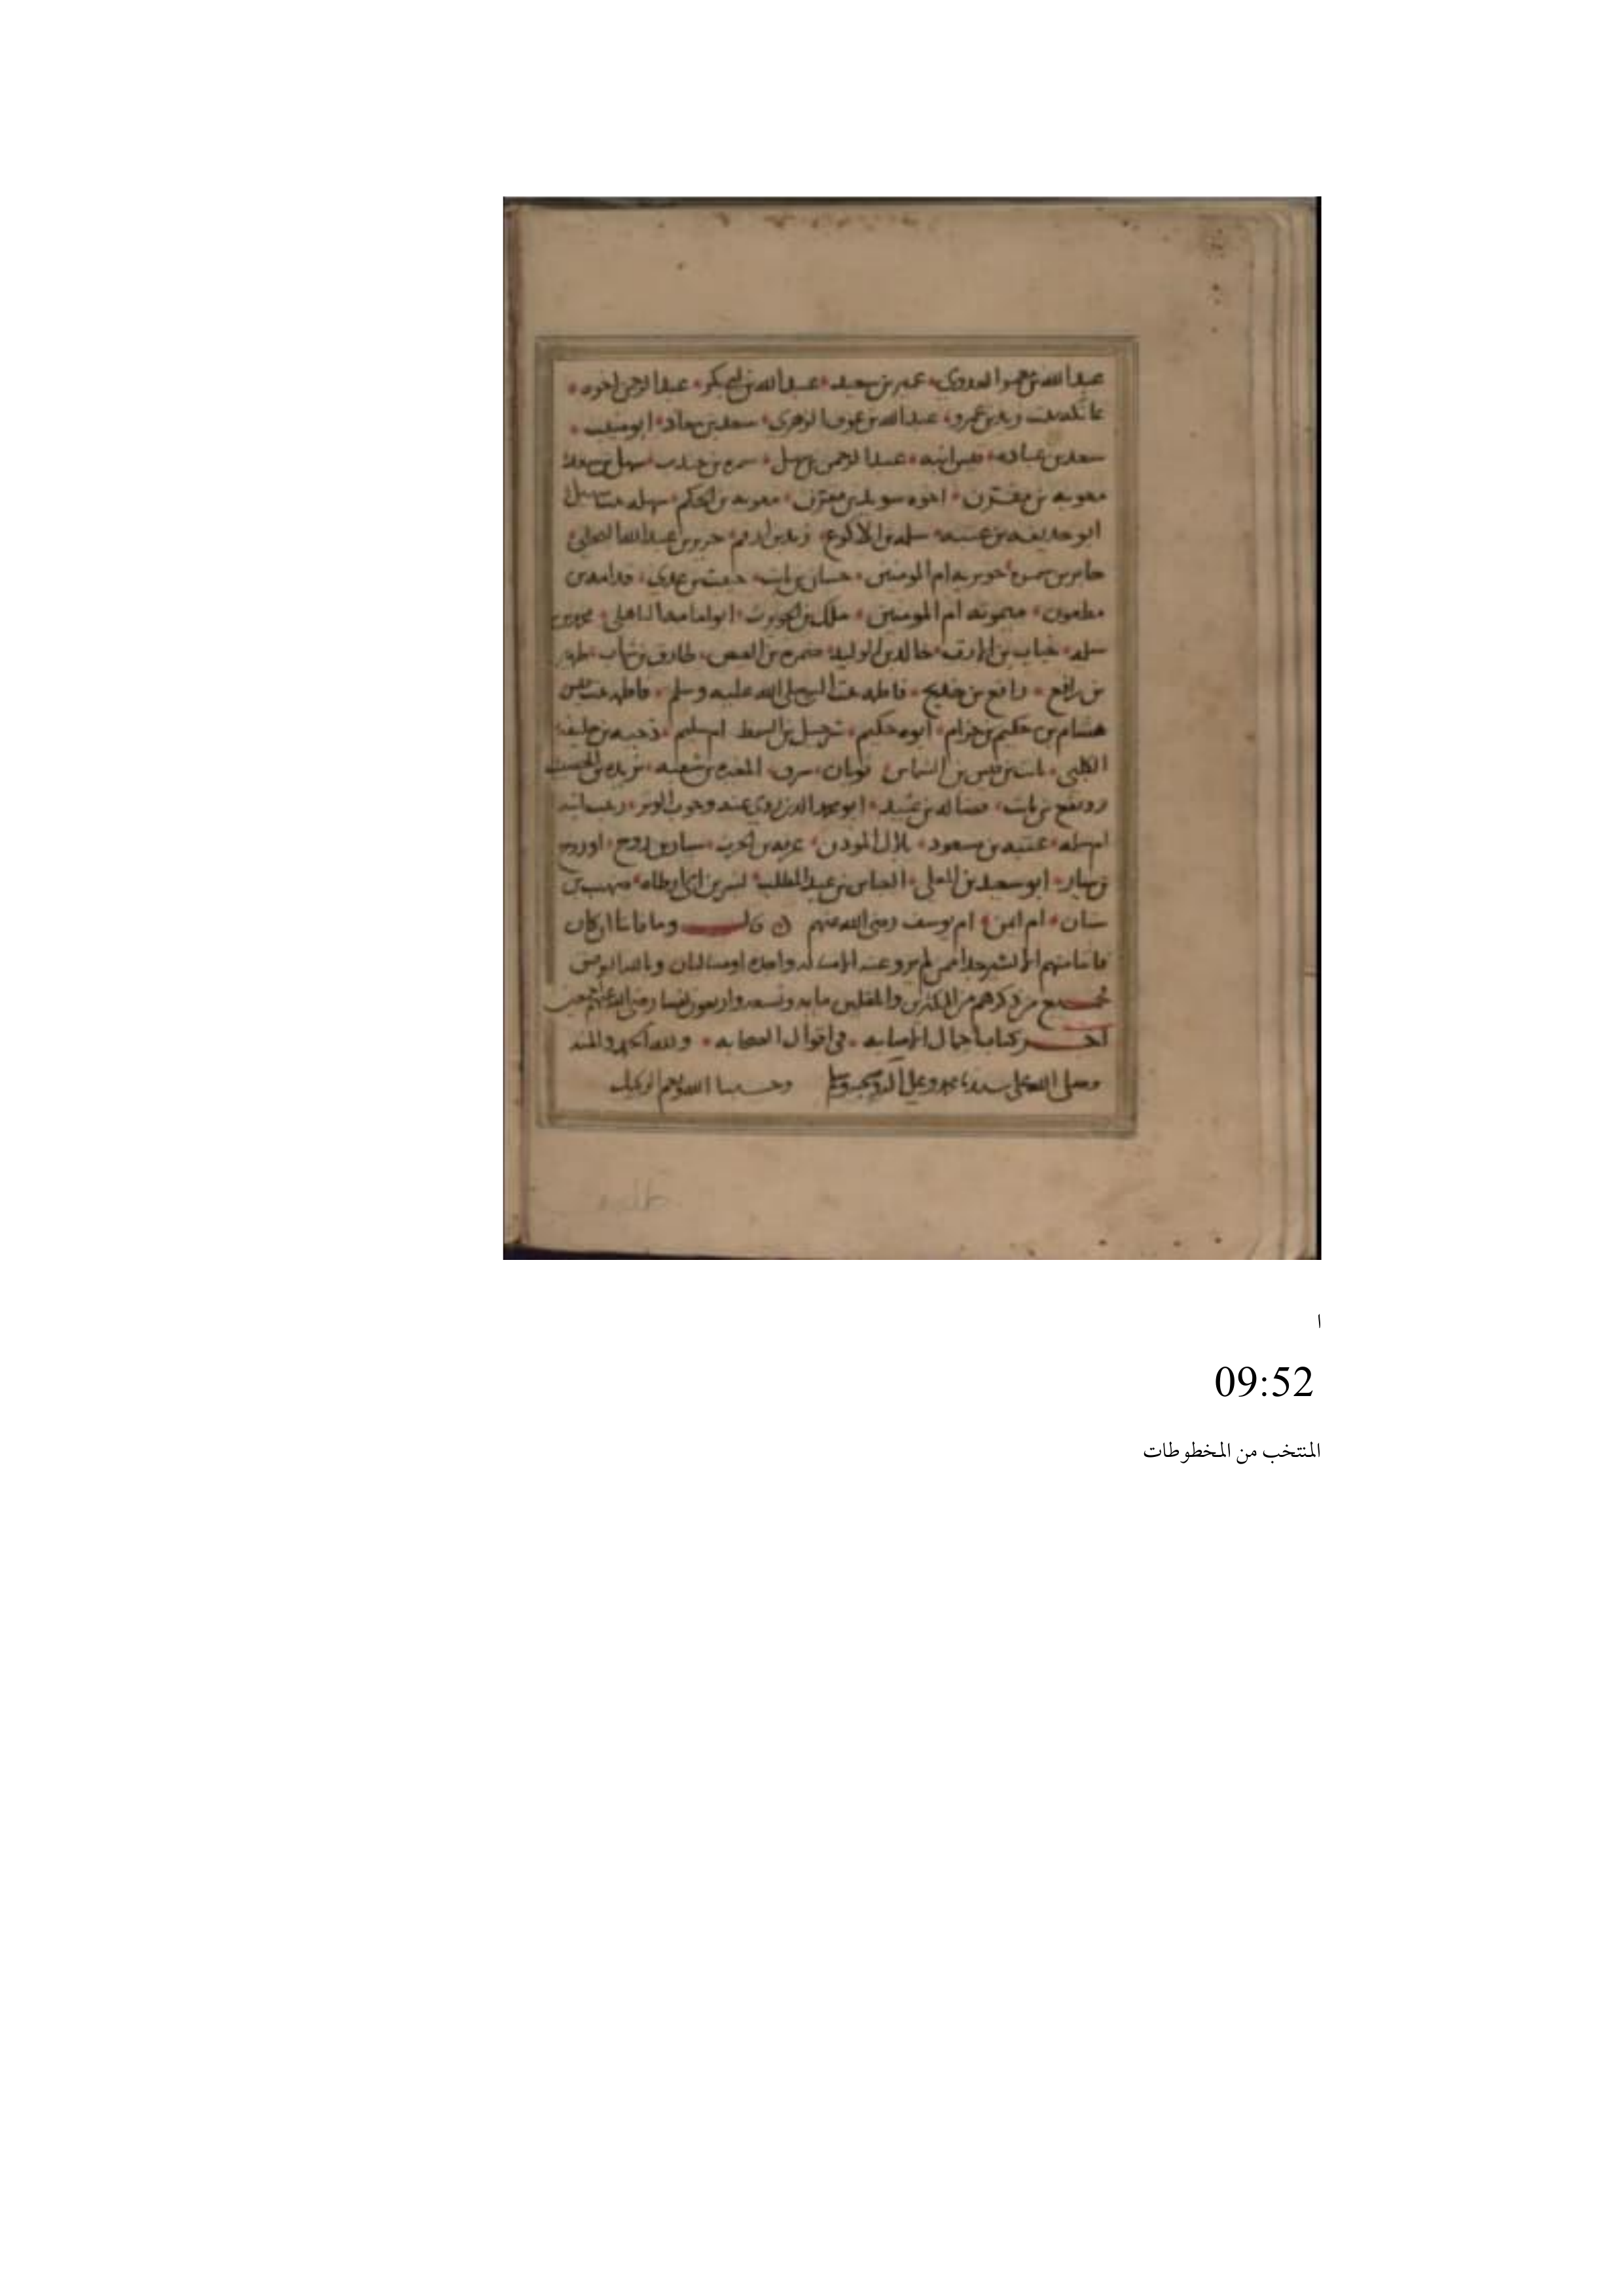 عبد الله بن جعفر العدوي عمير بن سعيد عبد الله بن ابي بكر عبد الرحمن اخوه
عاتكه بنت زيد بن عمرو عبد الله بن عوف الزهري سعد بن معاذ ابو منيب
سعد بن عباده قيس ابنه عبد الرحمن بن سهل سمره بن جندب سهل بن سعد
معويه بن مقرن اخوه سويد بن مقرن معويه بن الحكم سهله بنت سهيل
ابو حذيفه بن عتبه سلمه بن الاكوع زيد بن ارقم جرير بن عبد الله البجلي
جابر بن سمره جويريه ام المومنين حسان بن ثابت حبيب بن عدي قدامه بن
مظعون ميمونه ام المومنين ملك بن الحويرث ابو امامه الباهلي محمد بن
سلمه خباب بن الارت خالد بن الوليد ضمره بن العيص طارق بن شهاب ظهير
بن رافع رافع بن خديج فاطمه بنت النبي صلى الله عليه وسلم فاطمه بنت قيس
هشام بن حكيم بن حزام ابوه حكيم شرحبيل بن السمط ام سليم دحيه بن خليفه
الكلبي ثابت بن قيس بن الشماس ثوبان سرق المغيره بن شعبه بريده بن الحصيب
رويفع بن ثابت فضاله بن عبيد ابو محمد الذي روي عنه وجوب الوتر زينب ابنه
ام سلمه عتبه بن مسعود بلال الموذن عرفه بن الحرث سيار بن روح او روح
بن سيار ابو سعيد بن المعلى العباس بن عبد المطلب بسر بن ابي ارطاه صهيب بن
سنان ام ايمن ام يوسف رضي الله عنهم قال وما فاتنا ان كان
فاتنا منهم الا اليسير جدا ممن لم يرو عنه الا مساله واحده او مسالتان وبالله التوفيق
فجميع من ذكرهم من المكثرين والمقلين مايه وتسعه واربعون نفسا رضي الله عنهم اجمعين
اخر كتاب اجمال الاصابه في اقوال الصحابه ولله الحمد والمنه
وصلى الله على سيدنا محمد وعلى اله وصحبه وسلم وحسبنا الله ونعم الوكيل
ا
09:52
المنتخب من المخطوطات